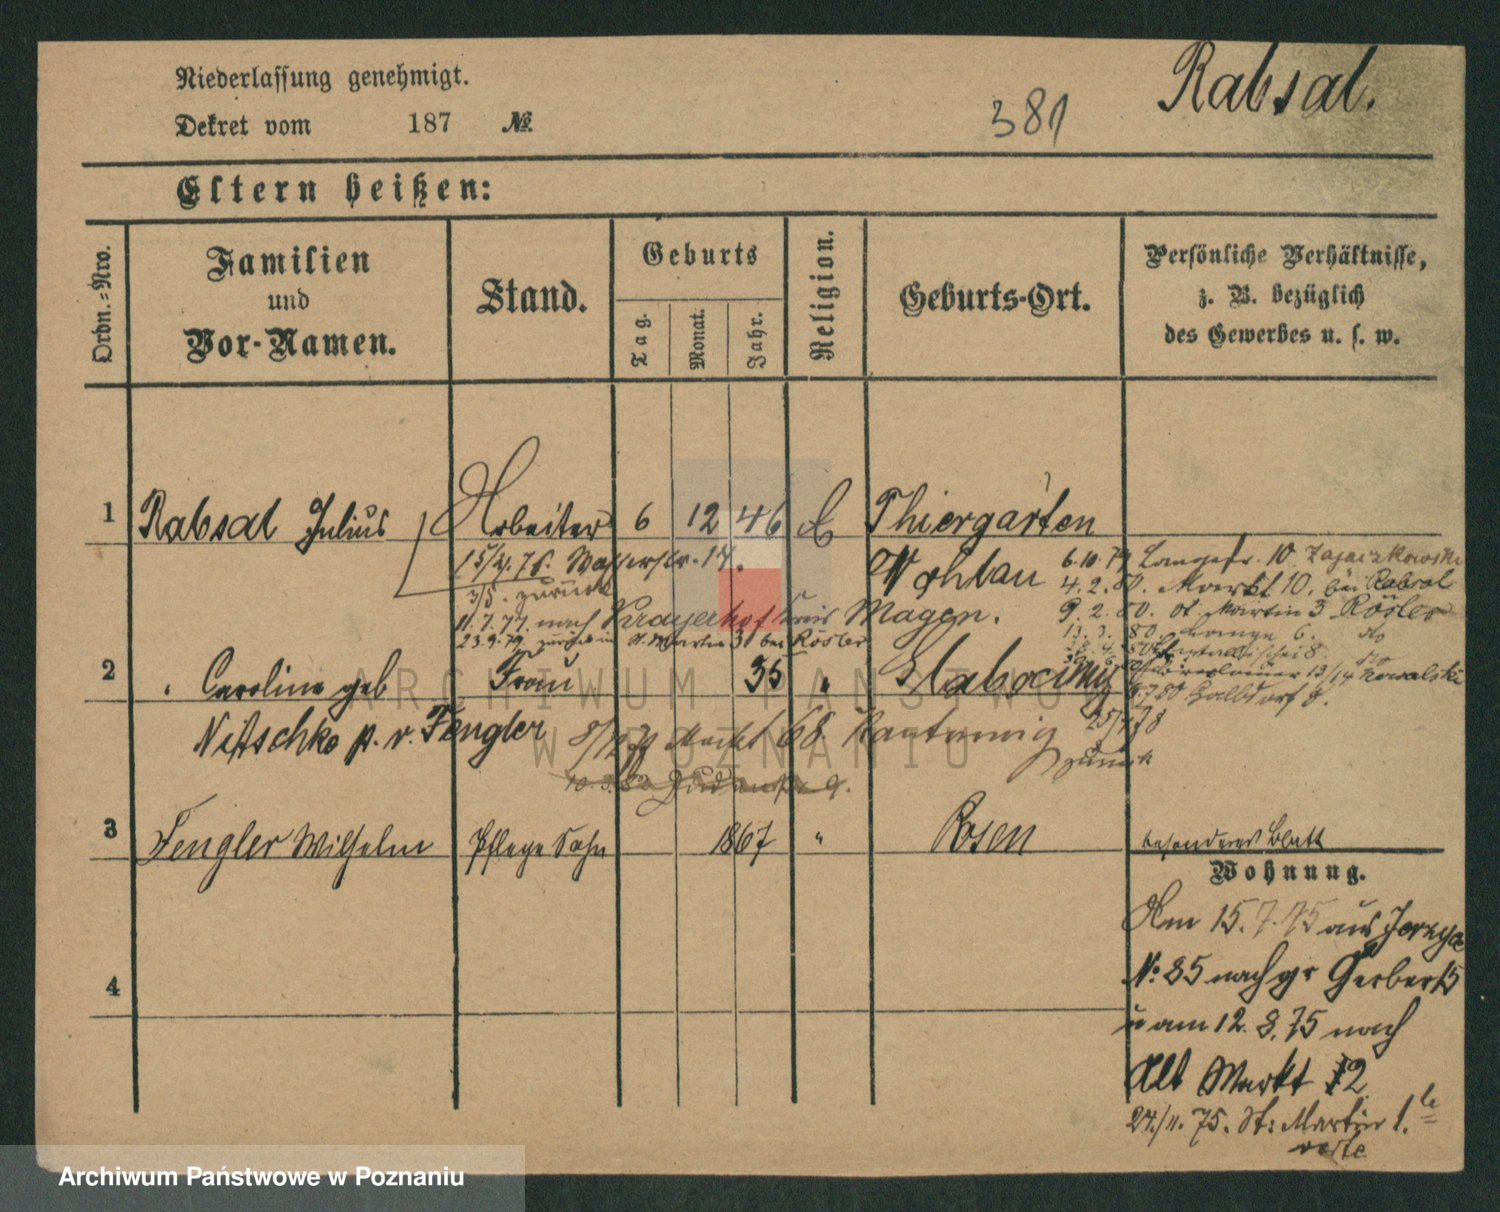 Niederlassung genehmigt.
Dekret vom 187 №
381
Rabsal.
Eltern heißen:
Ordn.-Nro.
Familien
und
Vor-Namen.
Stand.
Geburts
Tag.
Monat.
Jahr.
Religion.
Geburts-Ort.
Persönliche Verhältnisse,
z. B. bezüglich
des Gewerbes u. s. w.
1 Rabsal Julius Arbeiter 6 12 46 Thiergarten
Wohlau
15/4. 76. Wasserstr. 17.
3/5. zurück
11. 7. 77. nach Kreis
23. 9. 79. zurück St. Martin 3 bei Rösler
6. 10. 79 Langestr. 10 Zajaczkowski
4. 2. 80. Markt 10. bei Rabsal
9. 2. 80. St. Martin 3 Rösler
13. 3. 80. Lange 6.
13/14 Kowalski
2 Caroline geb Frau 35 "
Nitschke p. v. Fengler
Markt 68.
zurück
3 Fengler Wilhelm Pflege Sohn 1867 " Posen
besonderes Blatt
Wohnung.
Am 15. 7. 75 aus Jerzyce
No: 85 nach gr Gerber 15
u am 12. 8. 75 nach
Alt Markt 12
24./11. 75. St: Martin 1.
4
ARCHIWUM PAŃSTWOWE
W POZNANIU
Archiwum Państwowe w Poznaniu